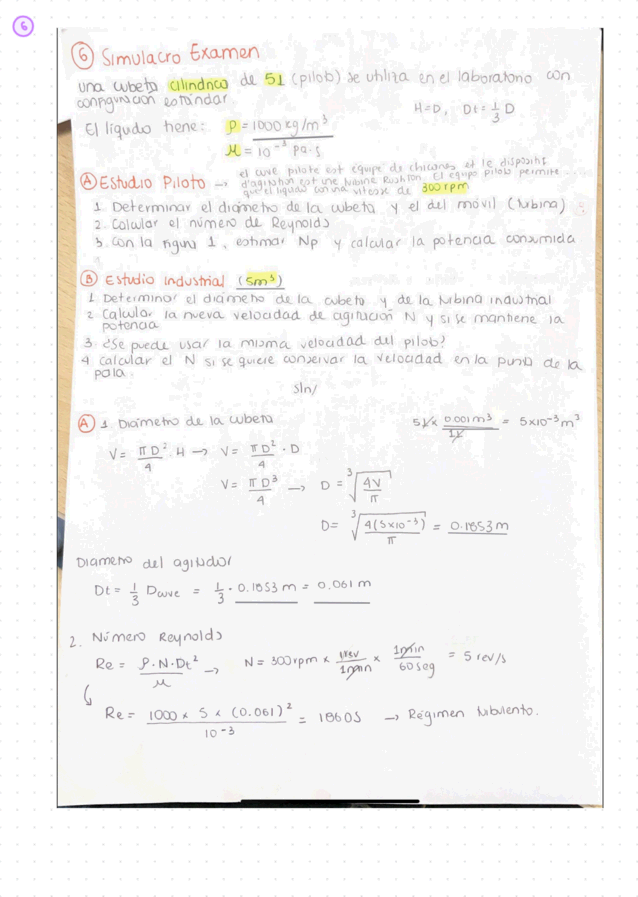 6
6 Simulacro Examen
una cubeta cilíndrica de 5l (piloto) se utiliza en el laboratorio con
configuración estándar
H=D, Dt = 1/3 D
El líquido tiene: ρ = 1000 kg/m³
μ = 10⁻³ Pa·s
A Estudio Piloto → el cuve pilote est équipé de chicanes et le dispositif
d'agitation est une turbine Rushton. El equipo piloto permite
que el liquido con una vitesse de 300 rpm
1. Determinar el diámetro de la cubeta y el del móvil (turbina)
2. Calcular el número de Reynolds
3. Con la figura 1, estimar Np y calcular la potencia consumida
B Estudio Industrial (5m³)
1. Determinar el diámetro de la cubeta y de la turbina industrial
2 Calcular la nueva velocidad de agitación N y si se mantiene la
potencia
3. ¿Se puede usar la misma velocidad del piloto?
4 calcular el N si se quiere conservar la velocidad en la punta de la
pala.
sln/
A 1. Diámetro de la cubeta
5l × 0.001m³/1l = 5×10⁻³ m³
V = πD²/4 · H → V = πD²/4 · D
V = πD³/4 → D = ³√(4V/π)
D = ³√(4(5×10⁻³)/π) = 0.1853 m
Diámetro del agitador
Dt = 1/3 Dcuve = 1/3 · 0.1853 m = 0.061 m
2. Número Reynolds
Re = ρ·N·Dt²/μ → N = 300 rpm × 1rev/1min × 1min/60seg = 5 rev/s
Re = 1000 × 5 × (0.061)²/10⁻³ = 18605 → Régimen turbulento.